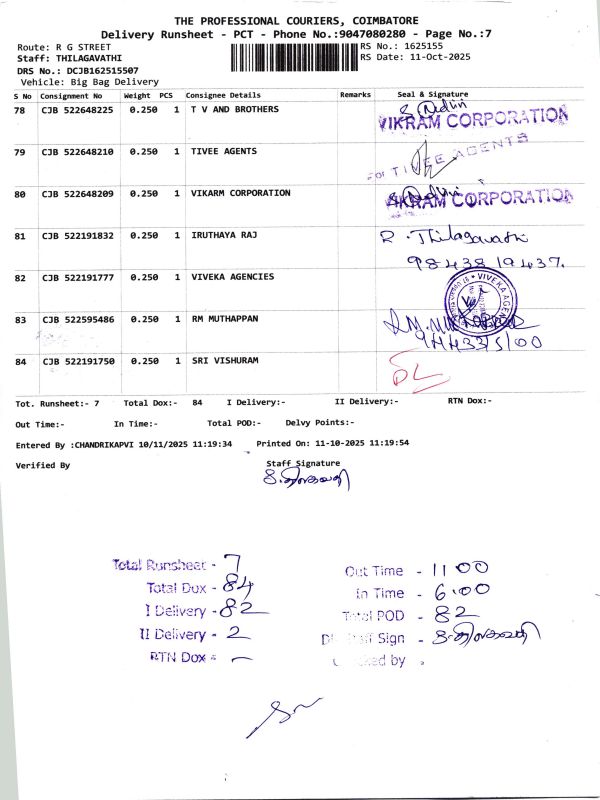 THE PROFESSIONAL COURIERS, COIMBATORE
Delivery Runsheet - PCT - Phone No.:9047080280 - Page No.:7
Route: R G STREET RS No.: 1625155
Staff: THILAGAVATHI RS Date: 11-Oct-2025
DRS No.: DCJB162515507
Vehicle: Big Bag Delivery
S No Consignment No Weight PCS Consignee Details Remarks Seal & Signature
78 CJB 522648225 0.250 1 T V AND BROTHERS
VIKRAM CORPORATION
79 CJB 522648210 0.250 1 TIVEE AGENTS
For TIVEE AGENTS
80 CJB 522648209 0.250 1 VIKARM CORPORATION
VIKRAM CORPORATION
81 CJB 522191832 0.250 1 IRUTHAYA RAJ R. Thilagavathi
98438 19437.
82 CJB 522191777 0.250 1 VIVEKA AGENCIES
VIVEKA AGEN
83 CJB 522595486 0.250 1 RM MUTHAPPAN
84 CJB 522191750 0.250 1 SRI VISHURAM
Tot. Runsheet:- 7 Total Dox:- 84 I Delivery:- II Delivery:- RTN Dox:-
Out Time:- In Time:- Total POD:- Delvy Points:-
Entered By :CHANDRIKAPVI 10/11/2025 11:19:34 Printed On: 11-10-2025 11:19:54
Verified By Staff Signature
Total Runsheet - 7 Out Time - 11 00
Total Dox - 84 In Time - 6.00
I Delivery - 82 Total POD - 82
II Delivery - 2 Sign -
RTN Dox - – by